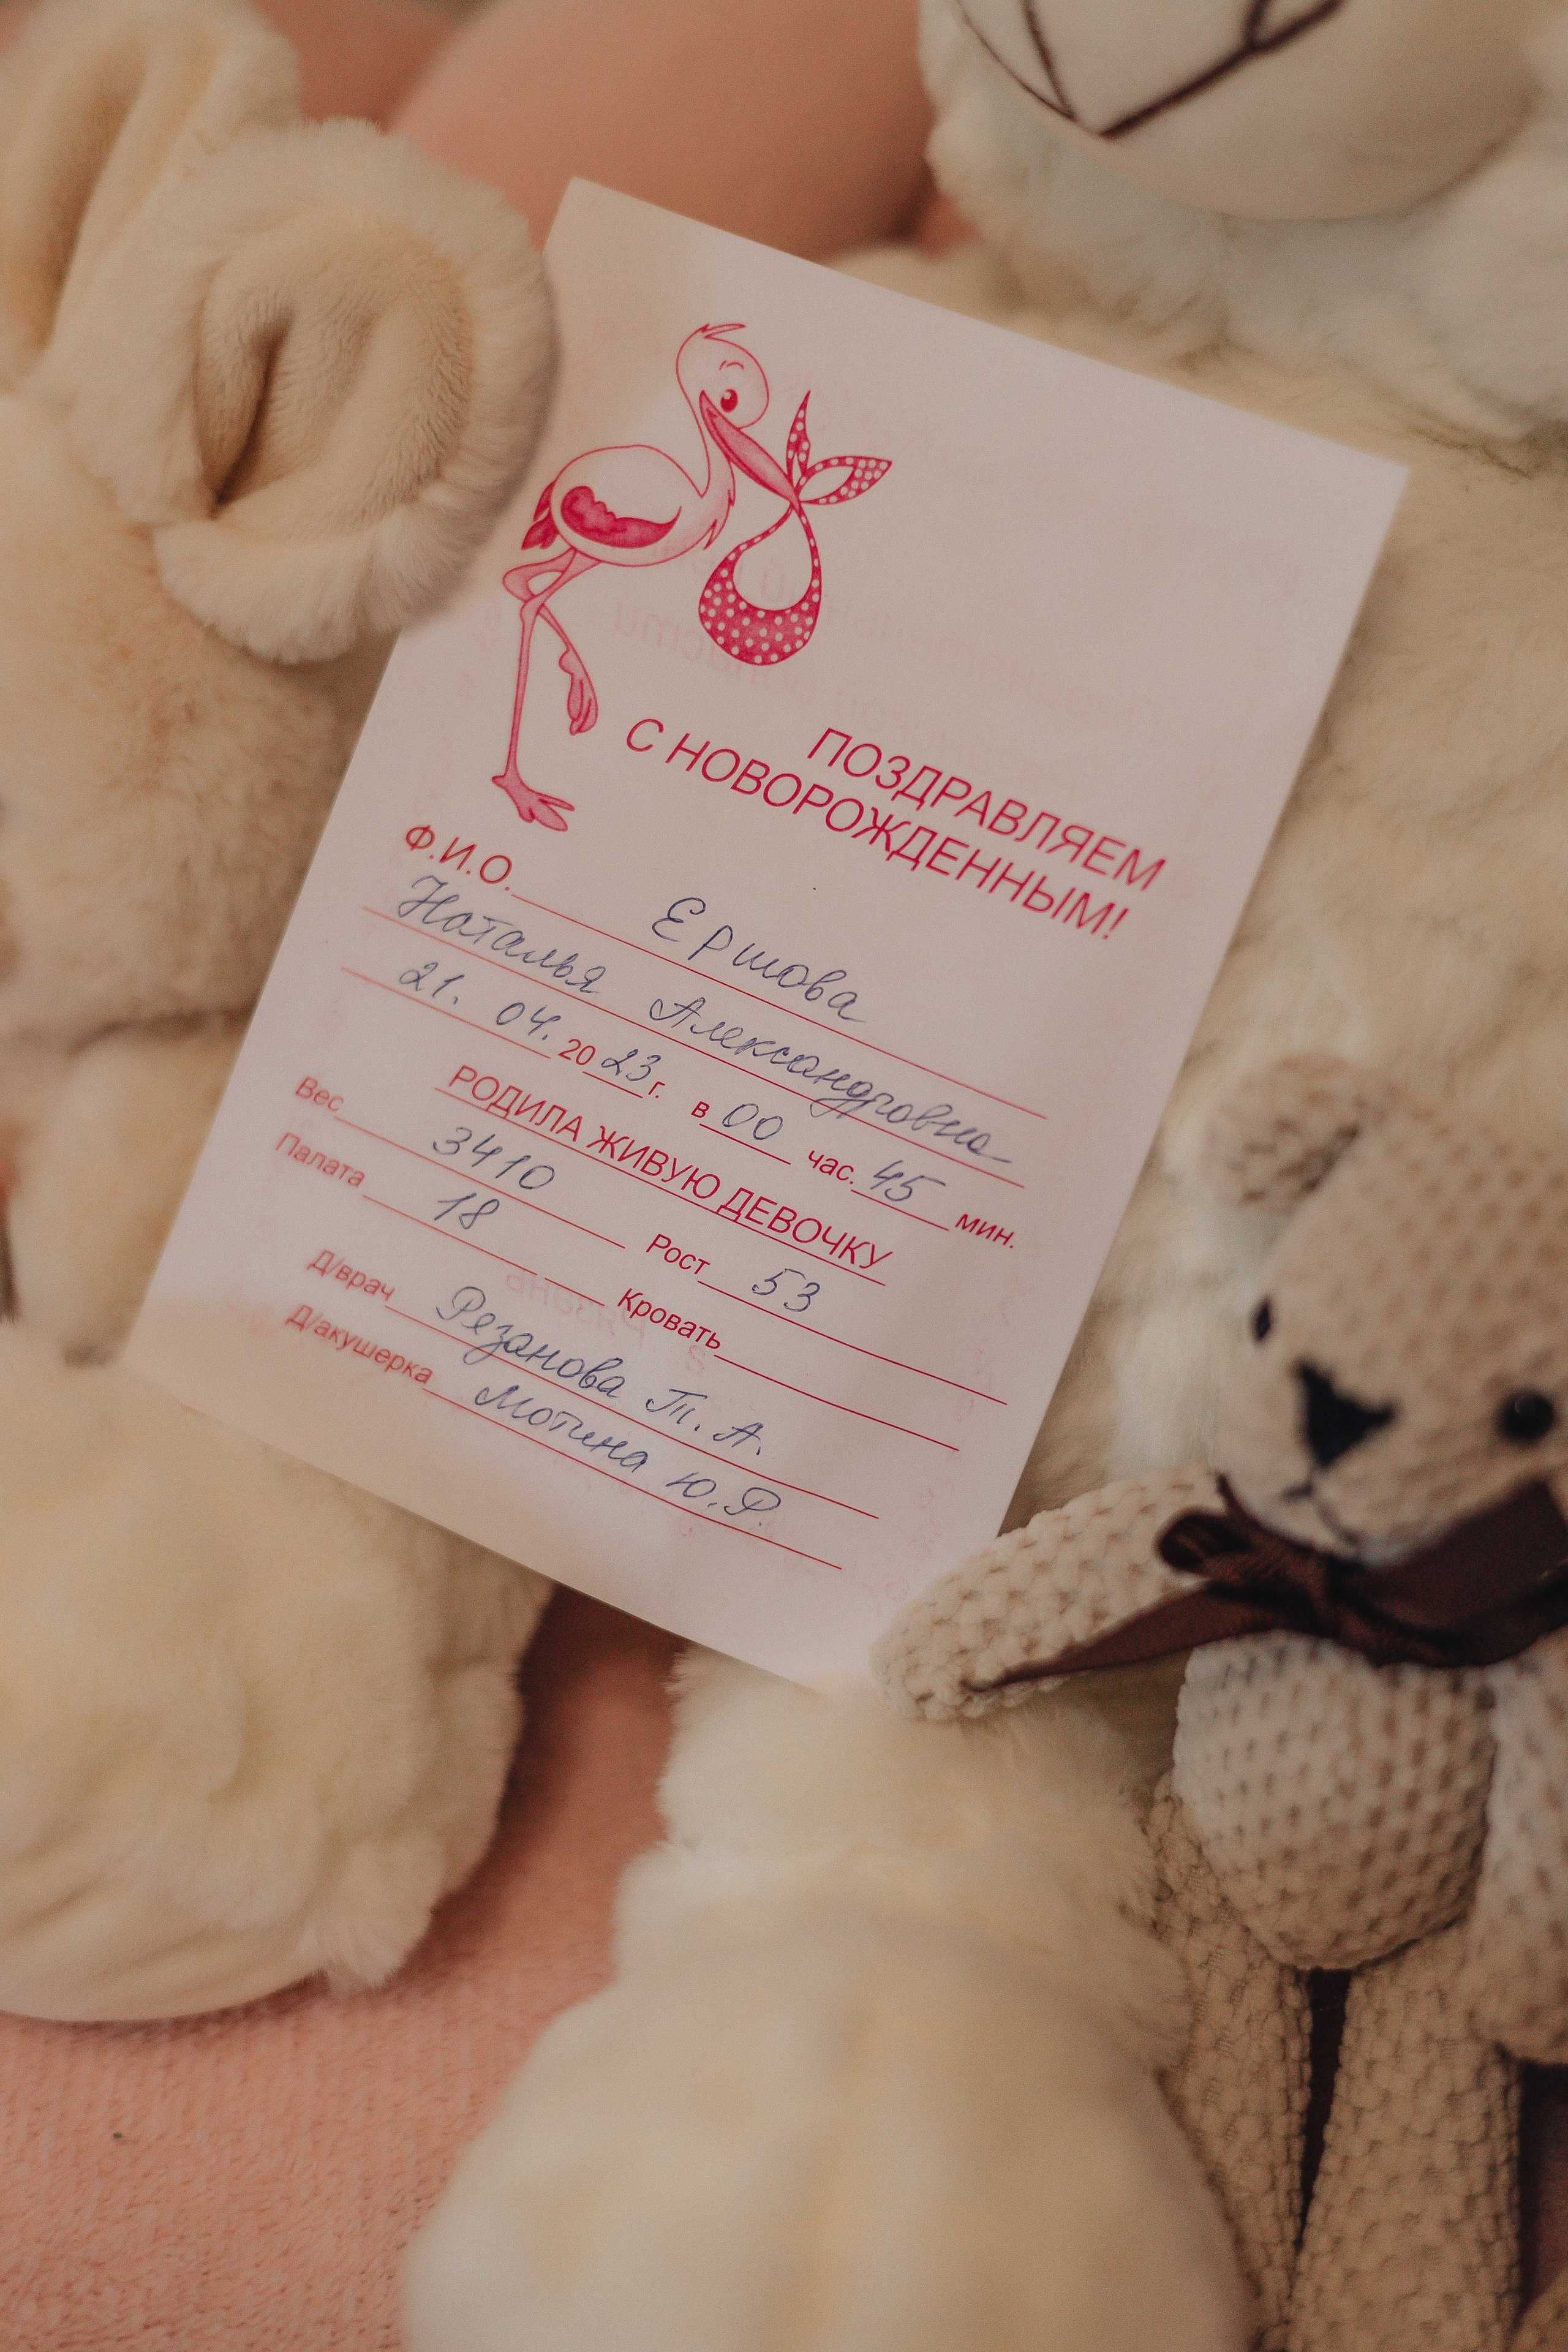 ПОЗДРАВЛЯЕМ
С НОВОРОЖДЕННЫМ!
Ф.И.О. Ершова
Наталья Александровна
21. 04. 2023 г. в 00 час. 45 мин.
РОДИЛА ЖИВУЮ ДЕВОЧКУ
Вес 3410 Рост 53
Палата 18 Кровать
Д/врач Резанова Т. А.
Д/акушерка Мотина Ю.Р.